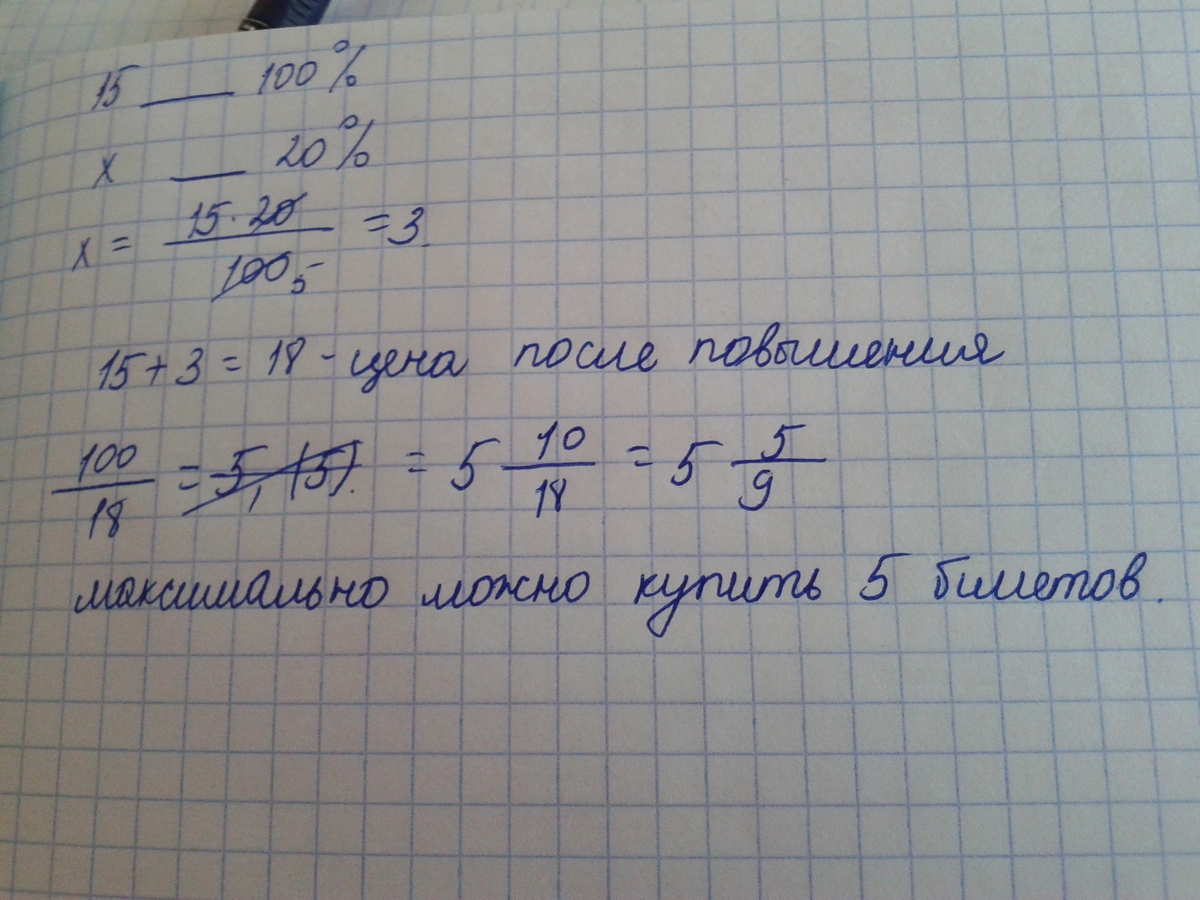 15 ___ 100%
x ___ 20%
x = 15·20/100 5 = 3
15+3 = 18 - цена после повышения
100/18 = 5,(5). = 5 10/18 = 5 5/9
максимально можно купить 5 билетов.